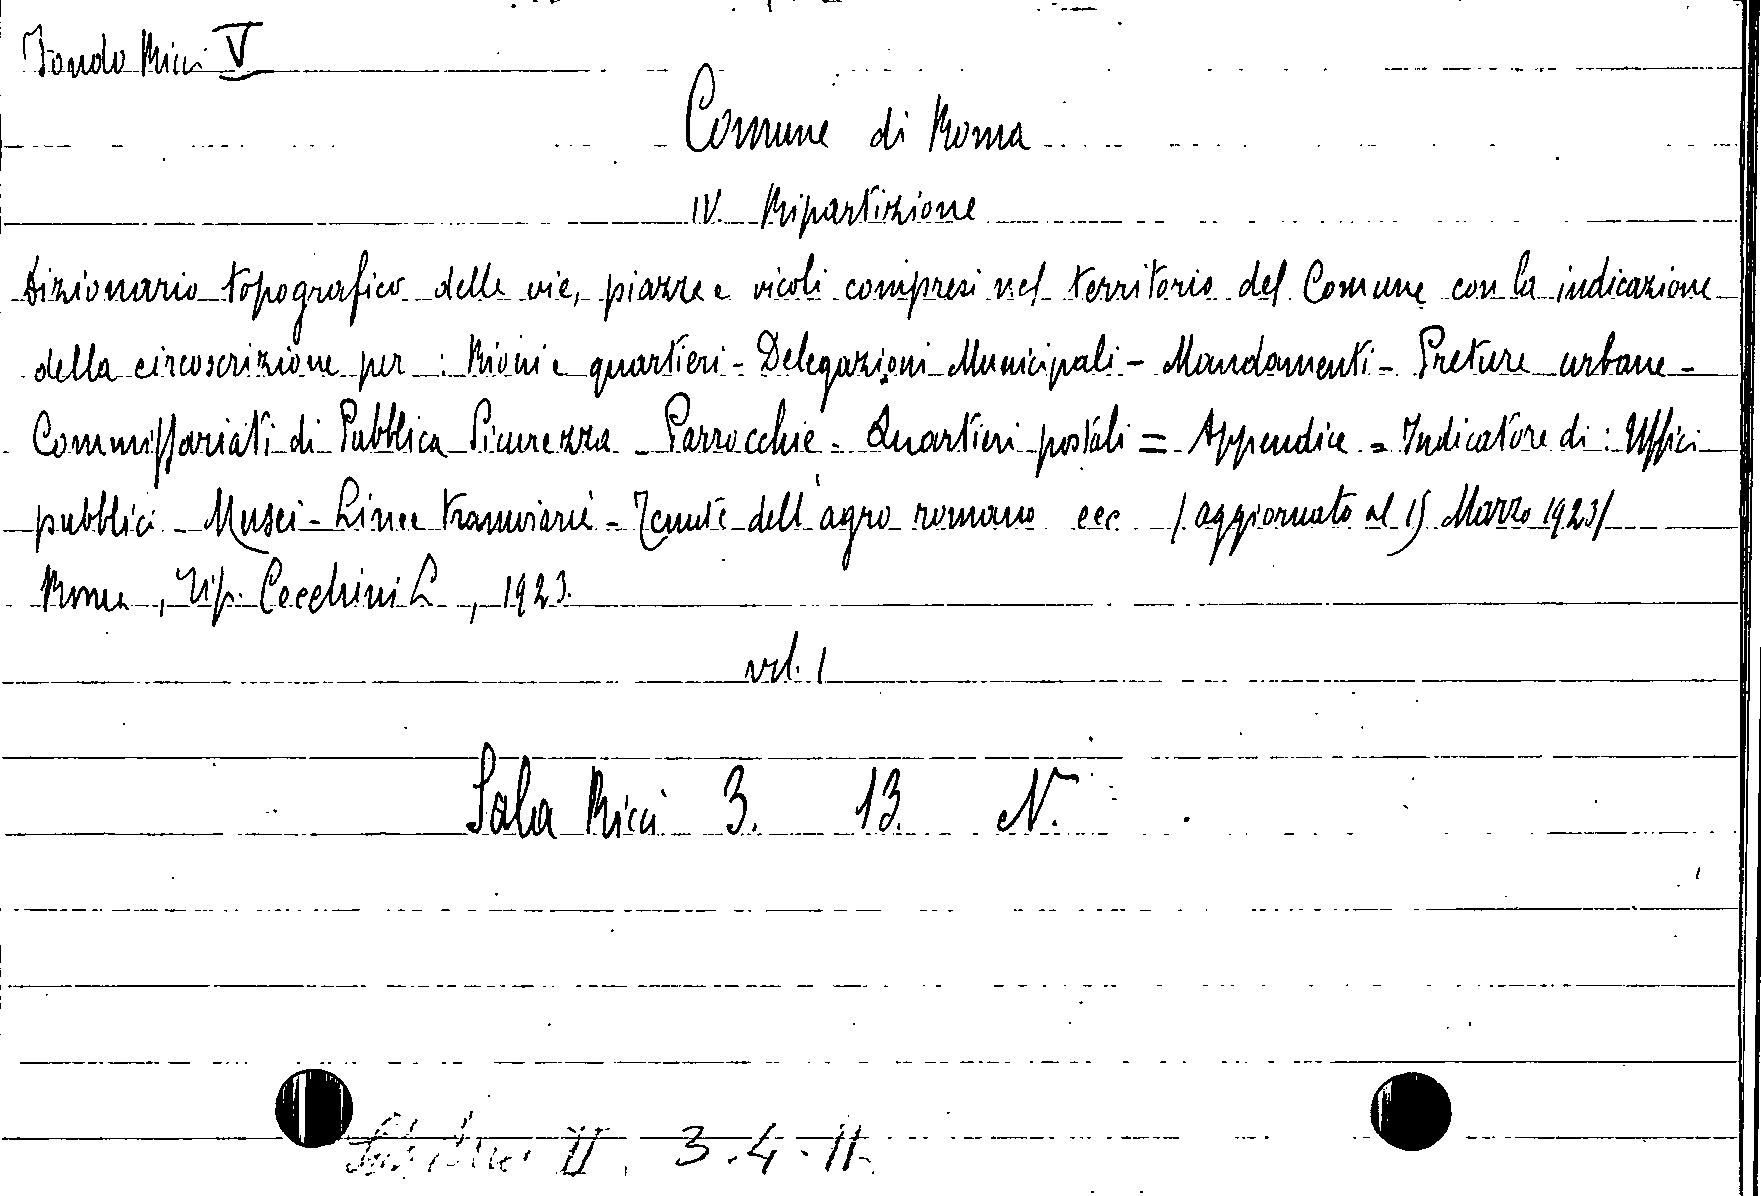 Fondo Ricci V
Comune di Roma
IV. Ripartizione
Dizionario topografico delle vie, piazze e vicoli compresi nel territorio del Comune con la indicazione
della circoscrizione per : Rioni e quartieri - Delegazioni Municipali - Mandamenti - Preture urbane -
Commissariati di Pubblica Sicurezza - Parrocchie - Quartieri postali = Appendice = Indicatore di : Uffici
pubblici - Musei - Linee tramviarie - Tenute dell'agro romano ecc / aggiornato al 15 Marzo 1923/
Roma, Tip. Cecchini L, 1923.
vol. 1
Sala Ricci 3. 13. N.
II. 3.4.11.